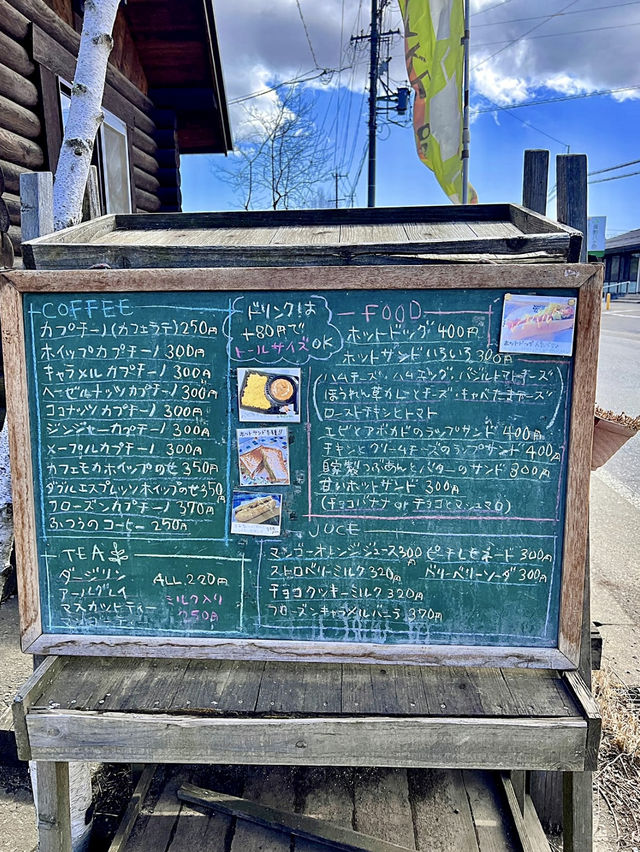 COFFEE
カプチーノ(カフェラテ)250円
ホイップカプチーノ 300円
キャラメルカプチーノ 300円
ヘーゼルナッツカプチーノ 300円
ココナッツカプチーノ 300円
ジンジャーカプチーノ 300円
メープルカプチーノ 300円
カフェモカホイップのせ 350円
ダブルエスプレッソホイップのせ 350
フローズンカプチーノ 370円
ふつうのコーヒー 250円
TEA
ダージリン
アールグレイ
マスカットティー
ALL 220円
ミルク入り
250円
ドリンクは
+80円で
トールサイズOK
FOOD
ホットドッグ 400円
ホットサンドいろいろ 300円
(ハムチーズ・ハムエッグ・バジルトマトチーズ
ほうれん草カレーとチーズ・キャベたまチーズ
ローストチキンとトマト
エビとアボカドのラップサンド 400円
チキンとクリームチーズのラップサンド 400円
自家製つぶあんとバターのサンド 300円
甘いホットサンド 300円
(チョコバナナ or チョコとマシュマロ)
JUCE
マンゴーオレンジジュース 300円
ストロベリーミルク 320円
チョコミルク 320円
フローズンキャラメルバニラ 370円
ピーチレモネード 300円
ベリーベリーソーダ 300円